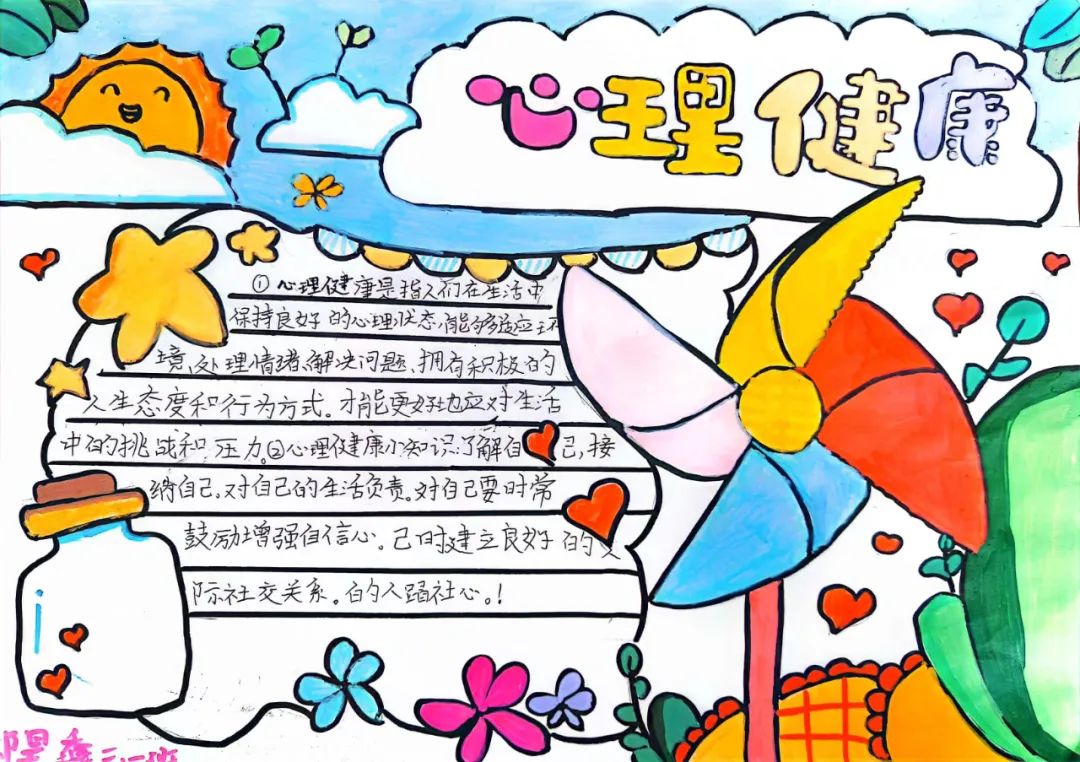 心理健康
①心理健康是指人们在生活中
保持良好的心理状态,能够适应环
境、处理情绪、解决问题、拥有积极的
人生态度和行为方式。才能更好地应对生活
中的挑战和压力。②心理健康小知识:了解自己,接
纳自己。对自己的生活负责。对自己要时常
鼓励增强自信心。己时建立良好的
际社交关系。的人踏社心。!
三一班